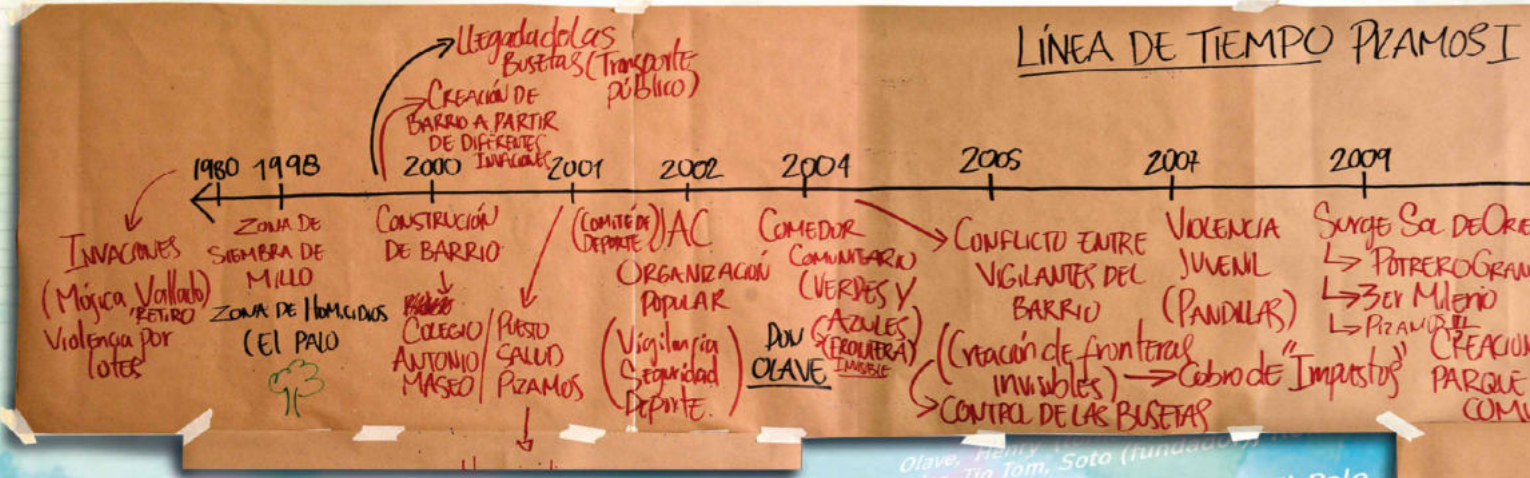 LÍNEA DE TIEMPO PIZAMOS I
Llegada de las
Busetas (Transporte
público)
CREACIÓN DE
BARRIO A PARTIR
DE DIFERENTES
INVACIONES
1980 1998 2000 2001 2002 2004 2005 2007 2009
INVACIONES
(Mójica, Vallado)
RETIRO
Violencia por
lotes
ZONA DE
SIEMBRA DE
MILLO
ZONA DE HOMICIDIOS
(El PALO
CONSTRUCIÓN
DE BARRIO
COLEGIO
ANTONIO
MASEO
PUESTO
SALUD
PIZAMOS
(COMITÉ DE
DEPORTE)
JAC
ORGANIZACIÓN
POPULAR
(Vigilancia
Seguridad
Deporte.)
COMEDOR
COMUNITARIO
(VERDES Y
AZULES)
(FRONTERA)
INVISIBLE
DON
OLAVE
CONFLICTO ENTRE
VIGILANTES DEL
BARRIO
(Creación de fronteras
invisibles)
CONTROL DE LAS BUSETAS
VIOLENCIA
JUVENIL
(PANDILLAS)
Cobro de "Impuestos"
Surge Sol DE ORIE
POTRERO GRAN
3er Milenio
PIZAMOS II
CREACION
PARQUE
COMU
Olave, Henry
Tio Tom, Soto (fundador),
Palo